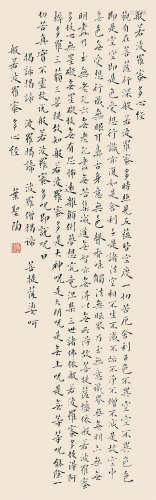 般若波羅蜜多心經
觀自在菩薩行深般若波羅蜜多時照見五蘊皆空度一切苦厄舍利子色不異空空不異
色色即是空空即是色受想行識亦復如是舍利子是諸法空相不生不滅不垢不淨不增不減是故空中
無色無受想行識無眼耳鼻舌身意無色聲香味觸法無眼界乃至無意識界無無明亦無無
明盡乃至無老死亦無老死盡無苦集滅道無智亦無得以無所得故菩提薩埵依般若波羅蜜
多故心無罣礙無罣礙故無有恐怖遠離顛倒夢想究竟涅槃三世諸佛依般若波羅蜜多故得阿
耨多羅三藐三菩提故知般若波羅蜜多是大神咒是大明咒是無上咒是無等等咒能除一
切苦真實不虛故說般若波羅蜜多咒即說咒曰
揭諦揭諦 波羅揭諦 波羅僧揭諦 菩提薩婆呵
般若波羅蜜多心經 葉聖陶